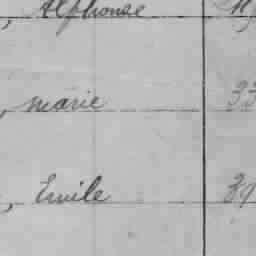 , Alphonse
, marie 33
, Emile 39